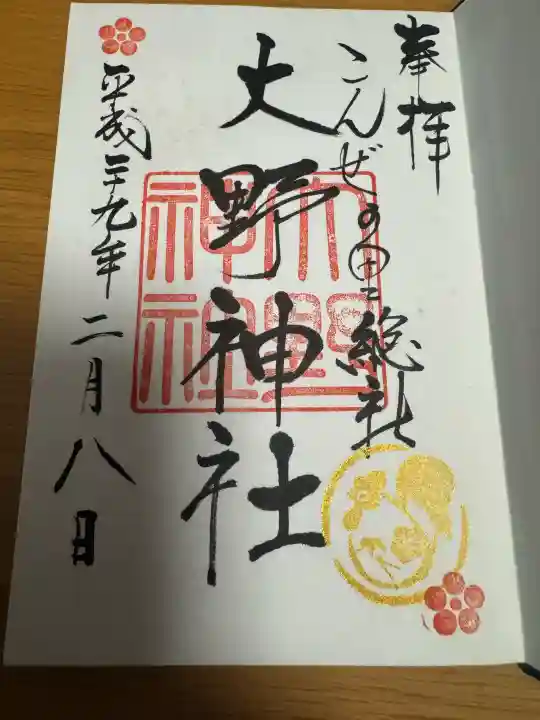 奉拝
こんぜの里総社
大野神社
大野
神社
平成二十九年二月八日